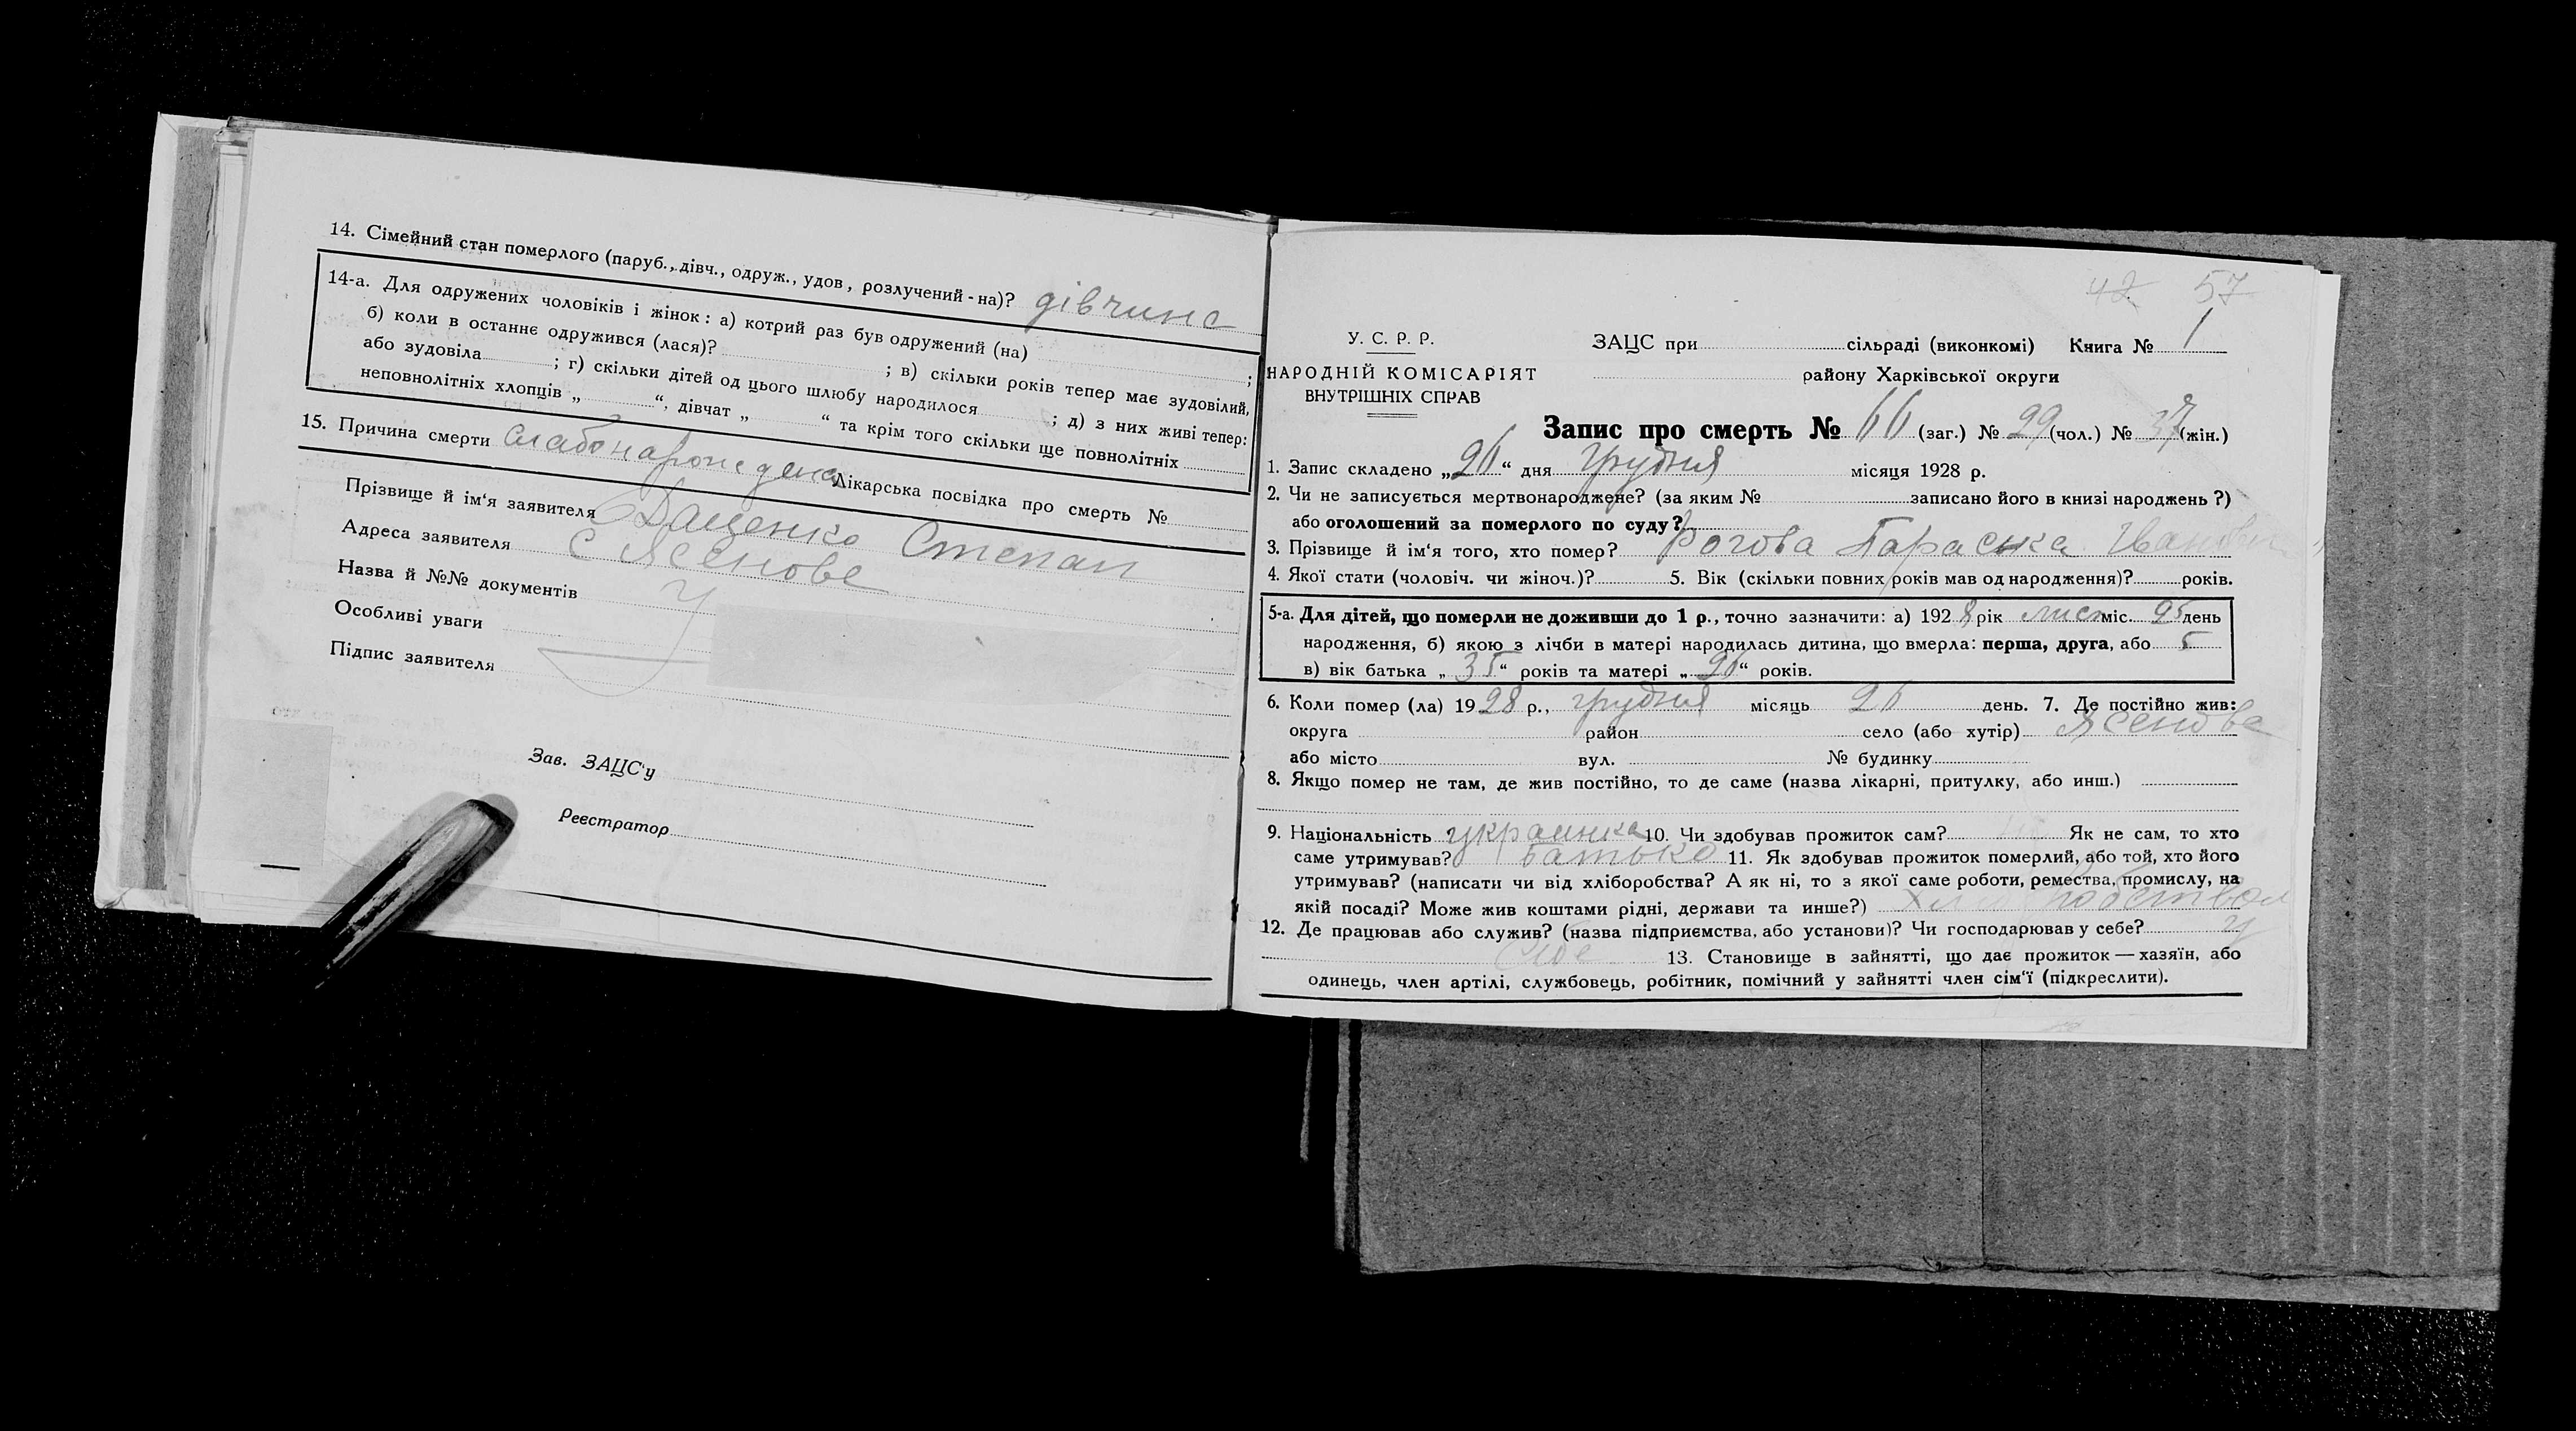 14. Сімейний стан померлого (паруб., дівч., одруж., удов, розлучений - на)? дівчина
14-а. Для одружених чоловіків і жінок: а) котрий раз був одружений (на) ;
б) коли в останнє одружився (лася)? ; в) скільки років тепер має зудовілий,
або зудовіла ; г) скільки дітей од цього шлюбу народилося ; д) з них живі тепер:
неповнолітніх хлопців „ “, дівчат „ “ та крім того скільки ще повнолітніх
15. Причина смерти Лікарська посвідка про смерть №
Прізвище й ім‘я заявителя Даценко Степан
Адреса заявителя с Ясенове
Назва й №№ документів
Особливі уваги
Підпис заявителя
Зав. ЗАЦС‘у
Реєстратор
42 57
У. С. Р. Р.
НАРОДНІЙ КОМІСАРІЯТ
ВНУТРІШНІХ СПРАВ
ЗАЦС при сільраді (виконкомі) Книга № 1
району Харківської округи
Запис про смерть № 66 (заг.) № 29 (чол.) № 37 (жін.)
1. Запис складено „26“ дня грудня місяця 1928 р.
2. Чи не записується мертвонароджене? (за яким № записано його в книзі народжень ?)
або оголошений за померлого по суду?
3. Прізвище й ім‘я того, хто помер? Рогова Параска Ивановна
4. Якої стати (чоловіч. чи жіноч.)? 5. Вік (скільки повних років мав од народження)? років.
5-а. Для дітей, що померли не доживши до 1 р., точно зазначити: а) 1928 рік лист міс. 25 день
народження, б) якою з лічби в матері народилась дитина, що вмерла: перша, друга, або 5
в) вік батька „35“ років та матері „26“ років.
6. Коли помер (ла) 1928 р., грудня місяць 26 день. 7. Де постійно жив:
округа район село (або хутір) Ясенове
або місто вул. № будинку
8. Якщо помер не там, де жив постійно, то де саме (назва лікарні, притулку, або инш.)
9. Національність украинка 10. Чи здобував прожиток сам? Як не сам, то хто
саме утримував? батько 11. Як здобував прожиток померлий, або той, хто його
утримував? (написати чи від хліборобства? А як ні, то з якої саме роботи, ремества, промислу, на
якій посаді? Може жив коштами рідні, держави та инше?)
12. Де працював або служив? (назва підприємства, або установи)? Чи господарював у себе? у
себе 13. Становище в зайнятті, що дає прожиток — хазяїн, або
одинець, член артілі, службовець, робітник, помічний у зайнятті член сім‘ї (підкреслити).